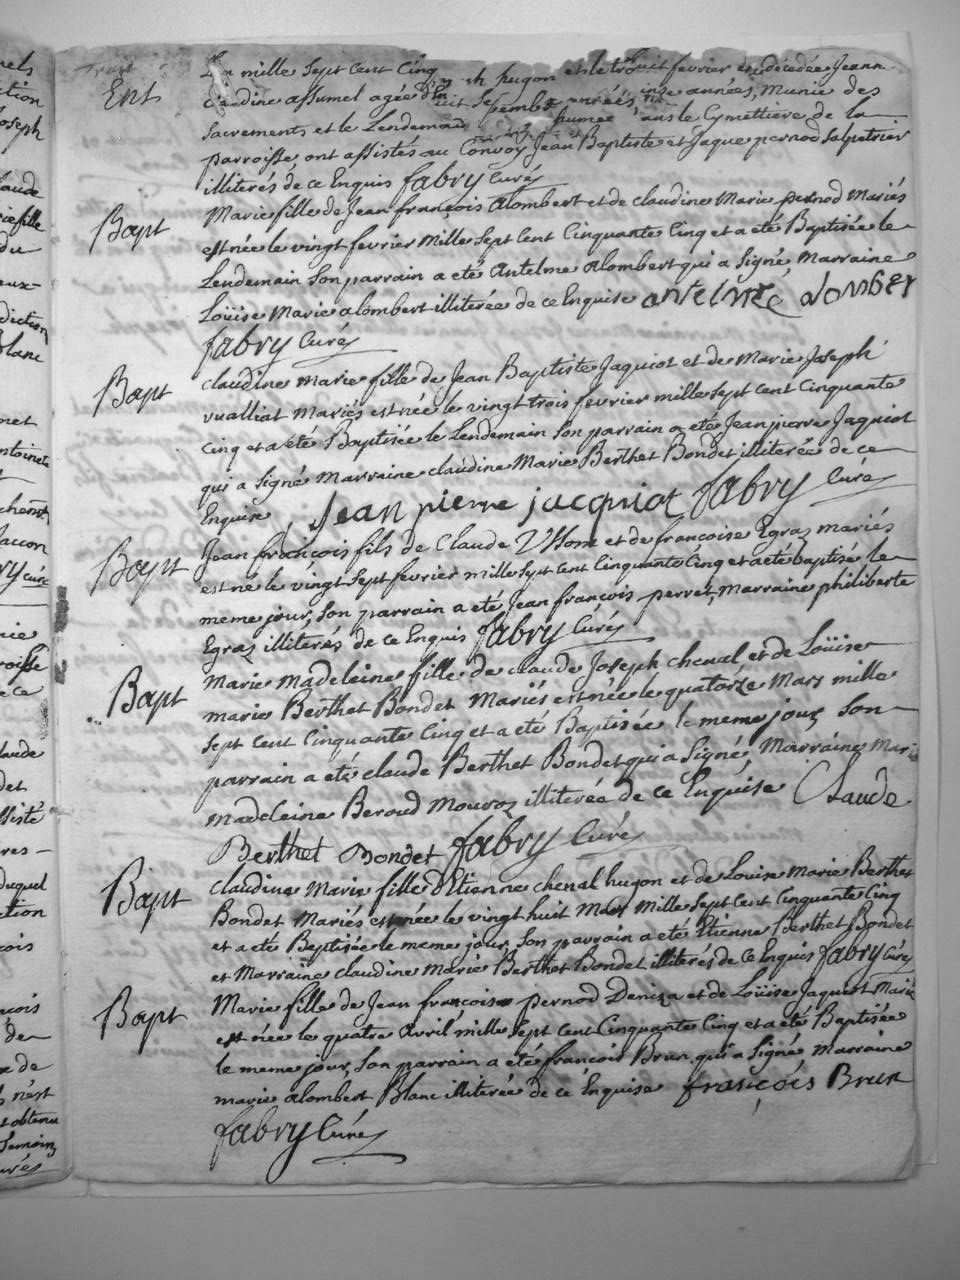 Ent
mille sept cent Cinq et le fevrier est decedée Jeanne
Claudine assumel agée années, Munie des
Sacrements et le Lendemain le Cymettiere de la
parroisse ont assistés au Convoy Jean Baptiste et Jaque pernod Salpetrier
illiterés de ce Enquis fabry Curé
Bapt
Marie fille de Jean françois Alombert et de claudine Marie pernod Mariés
est née le vingt fevrier Mille Sept Cent Cinquante Cinq et a eté Baptisée le
Lendemain Son parrain a eté Antelme Alombert qui a Signé Marraine
Loüise Marie alombert illiterée de ce Enquise antelme alomber
fabry Curé
Bapt
claudine marie fille de Jean Baptiste Jaquiot et de Marie Joseph
vualliat Mariés est née le vingt trois fevrier mille sept cent Cinquante
Cinq et a eté Baptisée le Lendemain Son parrain a eté Jean pierre Jaquiot
qui a signé Marraine claudine Marie Berthet Bondet illiterée de ce
Enquise Jean pierre jacquiot fabry Curé
Bapt
Jean françois fils de Claude et de francoise Egraz mariés
est né le vingt sept fevrier mille sept Cent Cinquante Cinq et a eté baptisé le
meme jour, Son parrain a eté Jean francois perret, marraine philiberte
Egraz illiterés de ce Enquis fabry Curé
Bapt
Marie Madeleine fille de claude Joseph chenal et de Loüise
marie Berthet Bondet Mariés est née le quatorze Mars mille
sept cent Cinquante Cinq et a eté Baptisée le meme jour Son
parrain a eté claude Berthet Bondet qui a Signé, Marraine Marie
madeleine Beroud Mouroz illiterée de ce Enquise Claude
Berthet Bondet fabry Curé
Bapt
claudine Marie fille d'Etienne chenal hugon et de Louise Marie Berthet
Bondet Mariés est née le vingt huit Mars Mille Sept Cent Cinquante Cinq
et a eté Baptisée le meme jour Son parrain a eté Etienne Berthet Bondet
et Marraine claudine Marie Berthet Bondet illiterés de Ce Enquis fabry Curé
Bapt
Marie fille de Jean françois pernod Deniza et de Loüise Jaquiot Mariés
est née le quatre Avril mille Sept Cent Cinquante Cinq et a eté Baptisée
le meme jour, Son parrain a eté francois Brun qui a Signé Marraine
marie alombert Blanc illiterée de ce Enquise françois Brun
fabry Curé